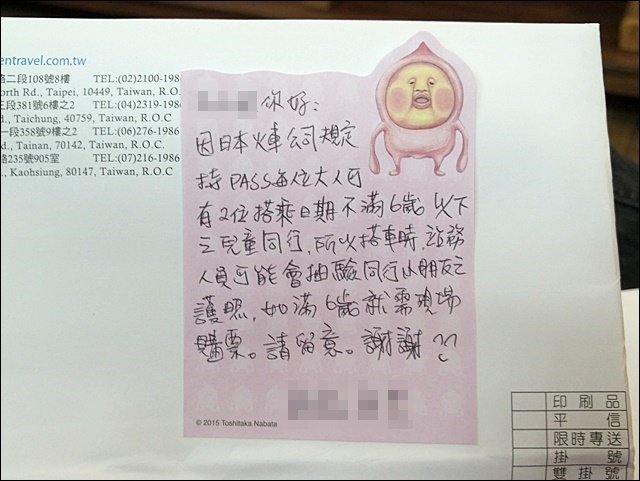 entravel.com.tw
路二段108號8樓 TEL:(02)2100-198
orth Rd., Taipei, 10449, Taiwan, R.O.
三段381號6樓之2 TEL:(04)2319-198
d., Taichung, 40759, Taiwan, R.O.C
一段358號9樓之2 TEL:(06)276-1986
d., Tainan, 70142, Taiwan, R.O.C.
路235號905室 TEL:(07)216-1986
., Kaohsiung, 80147, Taiwan, R.O.C
你好:
因日本火車公司規定
持PASS每位大人可
有2位搭乘日期不滿6歲以下
之兒童同行,所以搭車時,站務
人員可能會抽驗同行小朋友之
護照,如滿6歲就需現場
購票。請留意。謝謝
© 2015 Toshitaka Nabata
印刷品
平信
限時專送
掛號
雙掛號